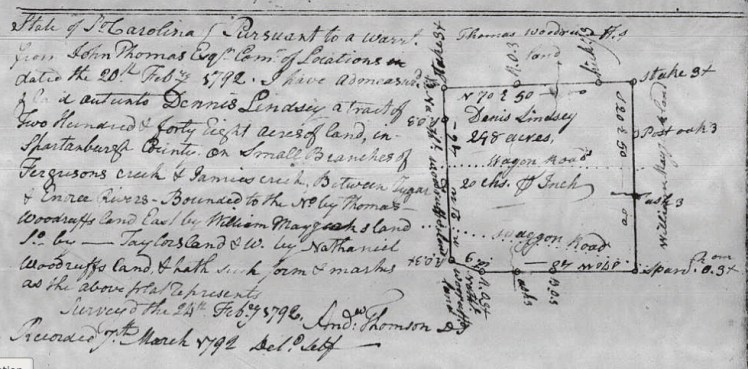 State of So Carolina } Pursuant to a warrt.
from John Thomas Esqr. Comr. of Locations
dated the 20th Feby 1792. I have admeasurd.
& laid out unto Dennis Lindsey a tract of
Two Hundred & forty Eight acres of land, in
Spartanburgh County. on Small Branches of
Fergusons creek & Jamies creek, Between Tygar
& Enoree Rivers - Bounded to the No by Thomas
Woodruffs land East by William Land
So. by — Taylors land & W. by Nathaniel
Woodruffs land, & hath such form & marks
as the above plat represents
Surveyed the 24th Feby 1792. Andw Thomson D
Recorded 7th March 1792 Deld. Self
Thomas Woodruffs
land
Stake 3x
R.O.3
Hickry 3
stake 3x
N 70 E 50
Denis Lindsey
248 acres.
Wagon Road
20 chs. Inch
waggon Road
Post oak 3
ash 3
William land
R.O.3x
B.O.3
ash 3